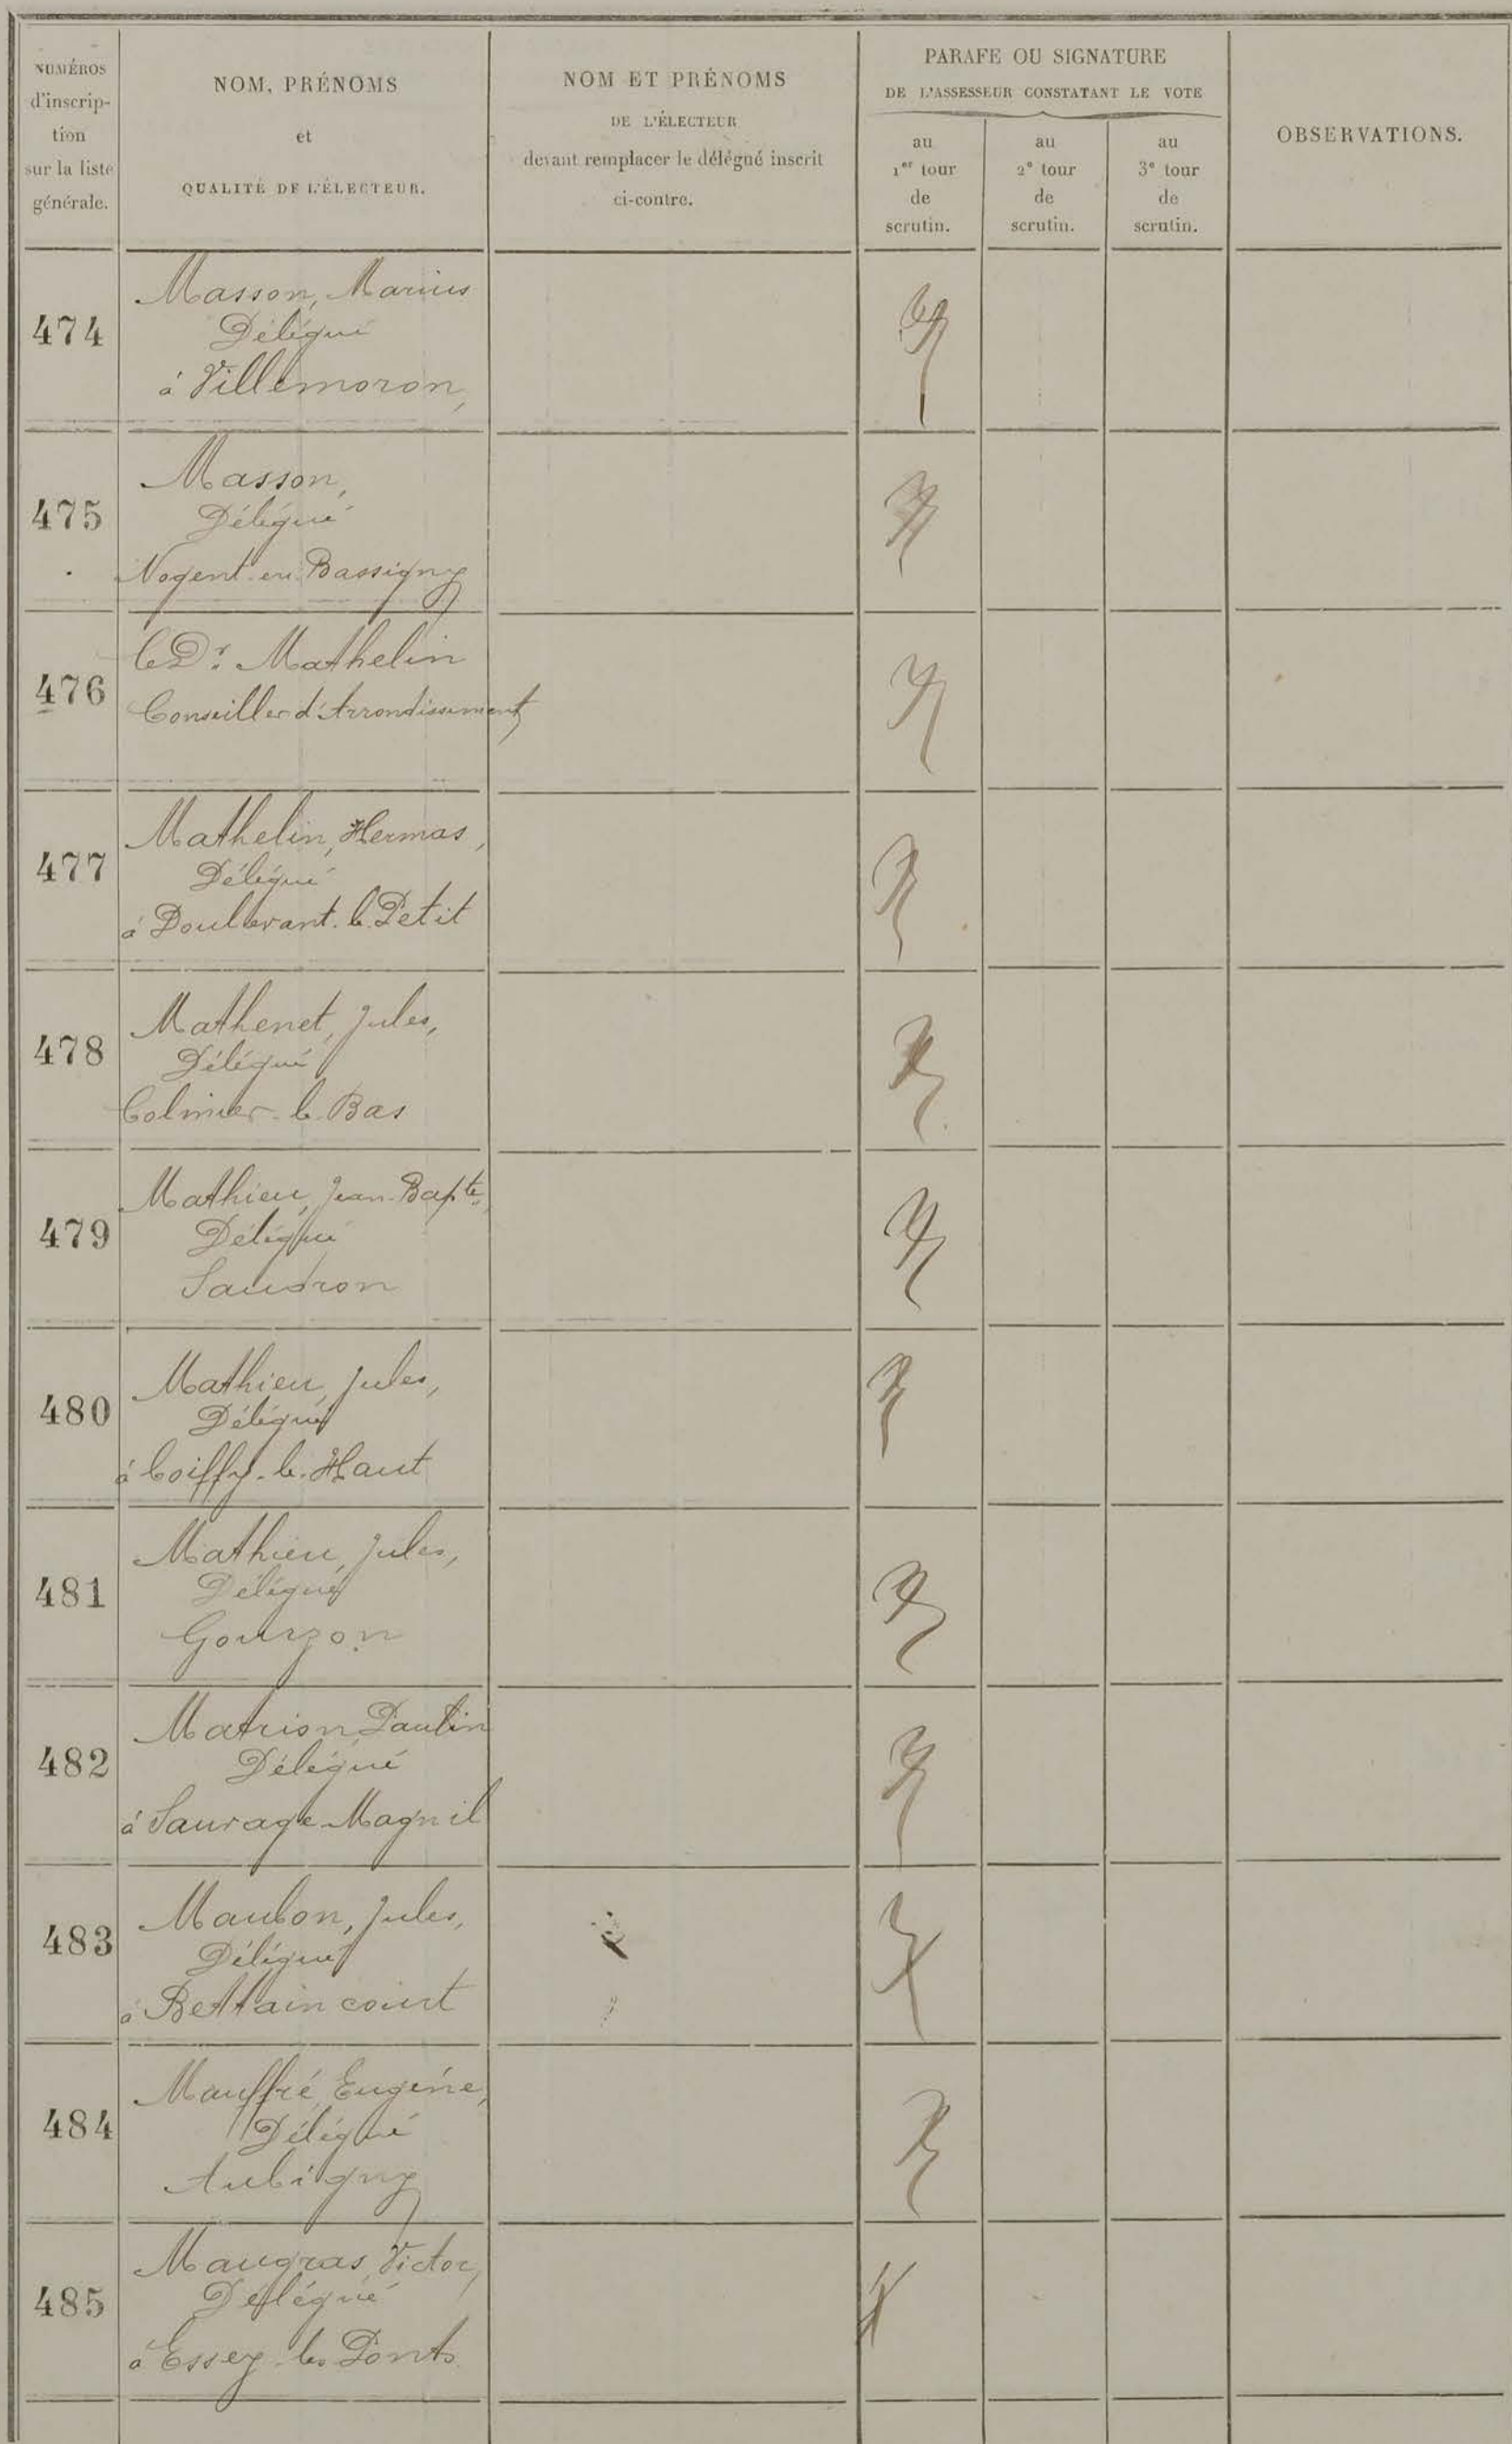 NUMÉROS
d'inscrip-
tion
sur la liste
générale.
NOM, PRÉNOMS
et
QUALITÉ DE L'ÉLECTEUR.
NOM ET PRÉNOMS
DE L'ÉLECTEUR
devant remplacer le délégué inscrit
ci-contre.
PARAFE OU SIGNATURE
DE L'ASSESSEUR CONSTATANT LE VOTE
au
1er tour
de
scrutin.
au
2e tour
de
scrutin.
au
3e tour
de
scrutin.
OBSERVATIONS.
474
Masson, Marius
Délégué
à Villemoron,
475
Masson,
Délégué
Nogent-en-Bassigny
476
Le Dr. Mathelin
Conseiller d'Arrondissement
477
Mathelin, Hermas,
Délégué
à Doulevant-le-Petit
478
Mathenet, Jules,
Délégué
Colmier-le-Bas
479
Mathieu, Jean-Bapte,
Délégué
Saudron
480
Mathieu, Jules,
Délégué
à Coiffy-le-Haut
481
Mathieu, Jules,
Délégué
Gourzon
482
Matrion, Paulin
Délégué
à Sauvage-Magnil
483
Maulon, Jules,
Délégué
à Bettaincourt
484
Mauffré, Eugène,
Délégué
Aubigny
485
Maugras, Victor,
Délégué
à Essey-les-Ponts